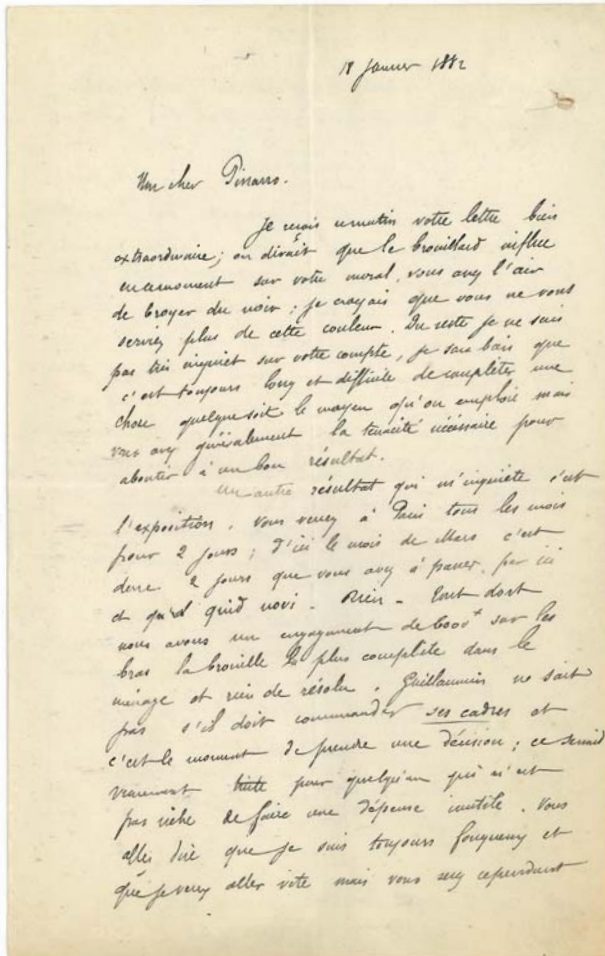 18 Janvier 1882
Mon cher Pissarro.
Je reçois ce matin votre lettre bien
extraordinaire; on dirait que le brouillard influe
enormément sur votre moral, vous avez l'air
de broyer du noir; je croyais que vous ne vous
serviez plus de cette couleur. Du reste je ne suis
pas très inquiet sur votre compte, je sais bien que
c'est toujours long et difficile de compléter une
chose quelque soit le moyen qu'on emploie mais
vous avez généralement la tenacité nécéssaire pour
aboutir à un bon résultat.
Un autre résultat qui m'inquiète c'est
l'exposition. Vous venez à Paris tous les mois
pour 2 jours; d'ici le mois de Mars c'est
donc 2 jours que vous avez à passer par ici
et quid novi - Rien - Tout dort
nous avons un engagement de 6000f sur les
bras la brouille la plus complète dans le
ménage et rien de résolu. Guillaumin ne sait
pas s'il doit commander ses cadres et
c'est le moment de prendre une décision; ce serait
vraiment triste pour quelqu'un qui n'est
pas riche de faire une dépense inutile. Vous
allez dire que je suis toujours fougueux et
que je veux aller vite mais vous serez cependant